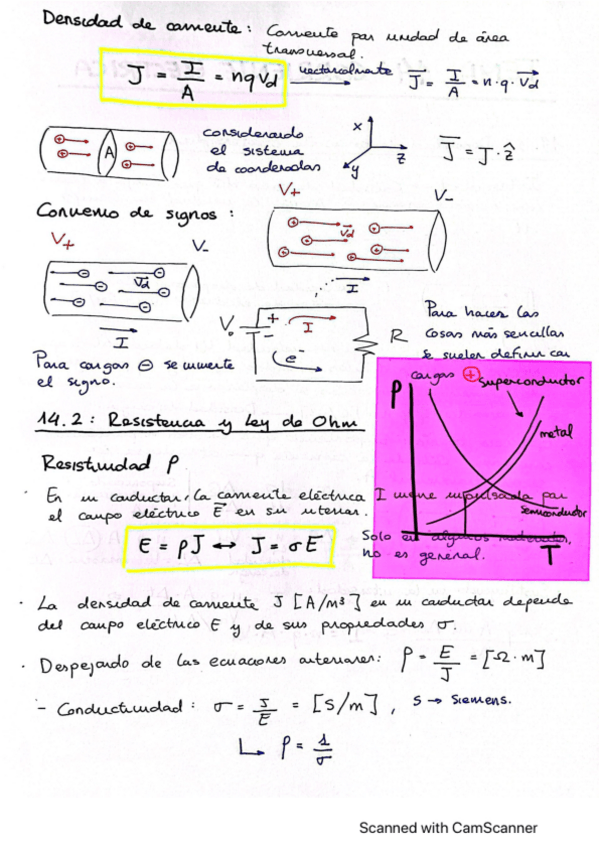 Densidad de corriente: Corriente por unidad de área
transversal.
J = I/A = nqvd vectorialmente J⃗ = I/A = n·q·v⃗d
considerando
el sistema
de coordenadas
A
x
y
z
J⃗ = J·ẑ
Convenio de signos:
V+ V-
v⃗d
I
V+ V-
v⃗d
I
V₀ + I
e⁻
R
Para cargas ⊖ se invierte
el signo.
Para hacer las
cosas más sencillas
se suelen definir con
cargas ⊕
14.2: Resistencia y Ley de Ohm
ρ
superconductor
metal
semiconductor
T
Resistividad ρ
· En un conductor, la corriente eléctrica I viene impulsada por
el campo eléctrico E⃗ en su interior.
E = ρJ ↔ J = σE
Solo en algunos materiales,
no es general.
· La densidad de corriente J [A/m³] en un conductor depende
del campo eléctrico E y de sus propiedades σ.
· Despejando de las ecuaciones anteriores: ρ = E/J = [Ω·m]
- Conductividad: σ = J/E = [S/m], S → Siemens.
↳ ρ = 1/σ
Scanned with CamScanner